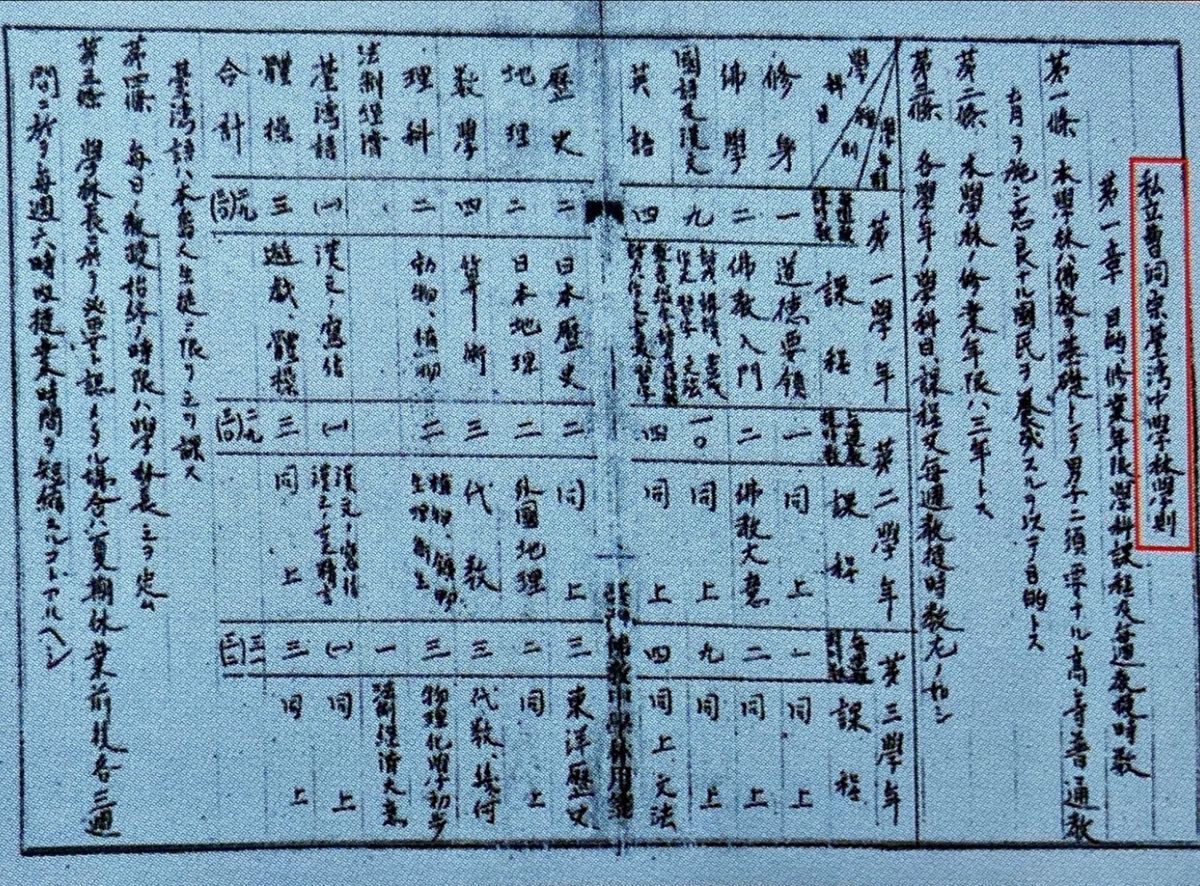 私立曹洞宗臺湾中學林學則
第一章 目的、修業年限學科課程及毎週教授時数
第一條 本學林ハ佛教ヲ基礎トシテ男子ニ須要ナル高等普通教
育ヲ施シ忠良ナル國民ヲ養成スルヲ以テ目的トス
第二條 本學林ノ修業年限ハ三年トス
第三條 各學年ノ學科目、課程及毎週教授時数左ノ如シ
學科目 學年 第一學年 第二學年 第三學年
毎週教授時数 課程 毎週教授時数 課程 毎週教授時数 課程
修身 一 道德要領 一 同上 一 同上
佛學 二 佛教入門 二 佛教大意 二 同上
國語及漢文 九 一〇 同上 九 同上
英語 四 四 同上 四 同上 文法
臺湾佛教中學林用紙
歷史 二 日本歷史 二 同上 三 東洋歷史
地理 二 日本地理 二 外國地理 二 同上
数學 四 算術 三 代数 三 代数、幾何
理科 二 動物、植物 二 植物、鑛物 生理衛生 三 物理化學初步
法制經濟 一 法制經濟大意
臺湾語 (一) 漢文ノ寫信 (一) 漢文ノ寫信 (一) 同上
體操 三 遊戯、體操 三 同上 三 同上
合計 二九 (三〇) 二九 (三〇) 三一 (三二)
臺湾語ハ本島人生徒ニ限リ之ヲ課ス
第四條 毎日ノ教授始終ノ時限ハ學林長之ヲ定ム
第五條 學林長ニ於テ必要ト認メタル場合ハ夏期休業前後各三週
間ニ於テ毎週六時以授業時間ヲ短縮スルコトアルヘシ